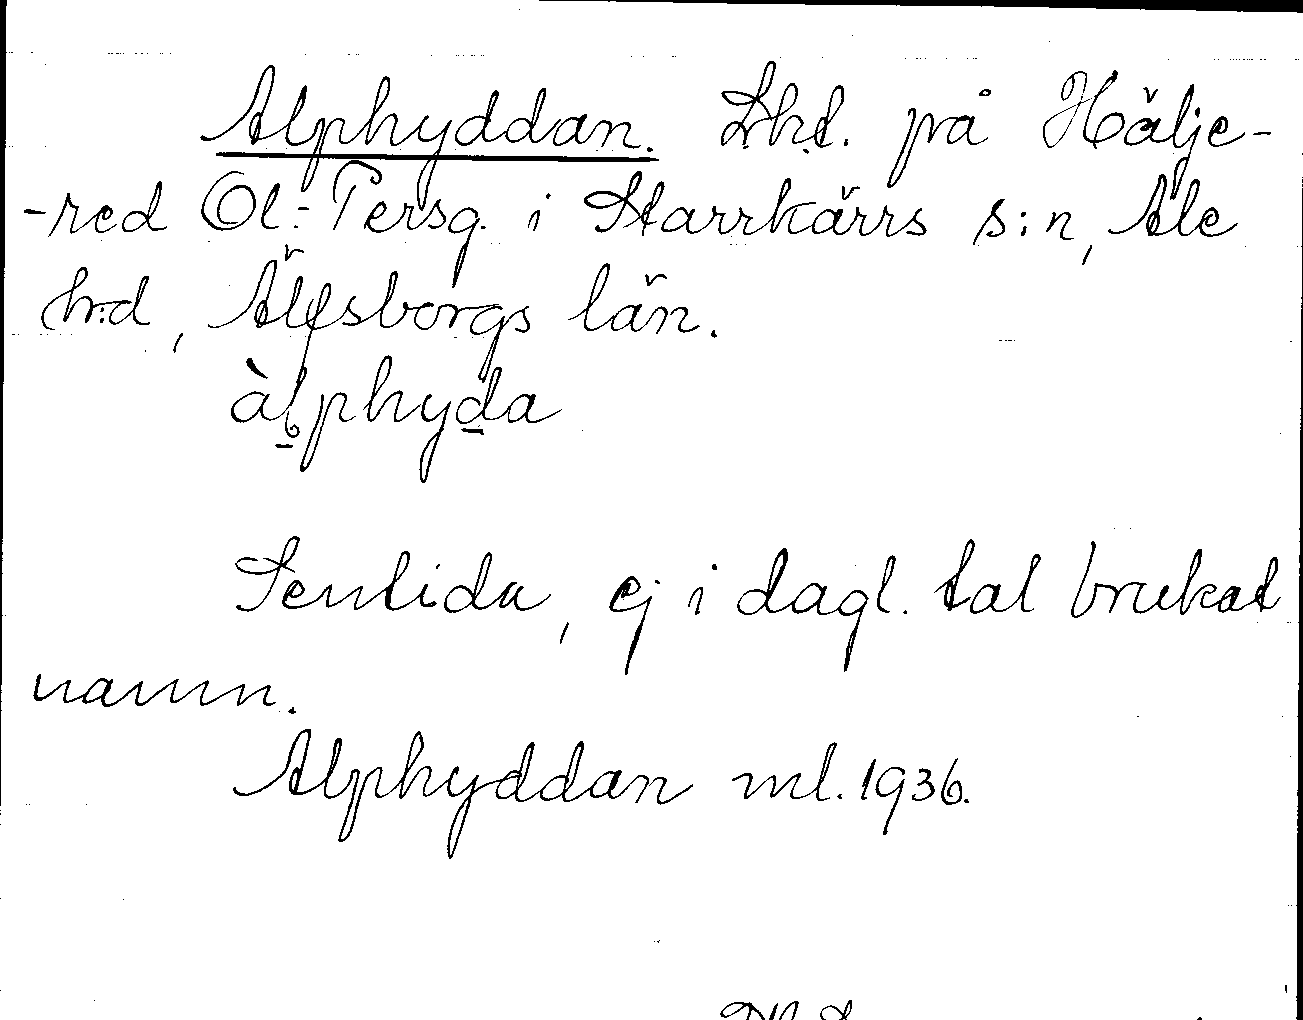 Alphyddan. Lht. på Hälje-
-red Ol-Persg. i Starrkärrs s:n, Ale
hrd, Älfsborgs län.
àlphyda
Sentida, ej i dagl. tal brukat
namn.
Alphyddan ml. 1936.